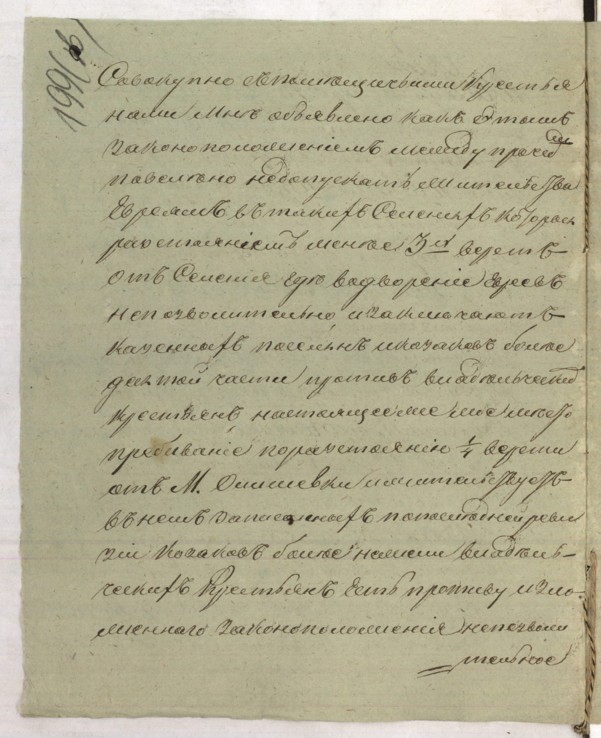 199(об)
Совокупно съ помѣщичьими Крестья
нами Мнѣ объявлено какъ въ томъ
Законоположеніемъ между прочимъ
повелѣно недопускать жительства
Евреямъ въ такихъ Селеніяхъ которые
разстояніемъ менѣе 3хъ верстъ
отъ Селенія где водвореніе Евреевъ
непозволительно и заключаютъ
казенныхъ поселянъ и козаковъ болѣе
десятой части противъ владѣльческихъ
крестьянъ настоящее же мое
пребываніе по разстоянію ¼ версты
отъ М. Олишевки и жительству
въ немъ записанныхъ по последней реви
зіи Козаковъ болѣе нежели владѣль-
ческихъ Крестьянъ есть противу изло-
женнаго законоположенія непозволи
тельное